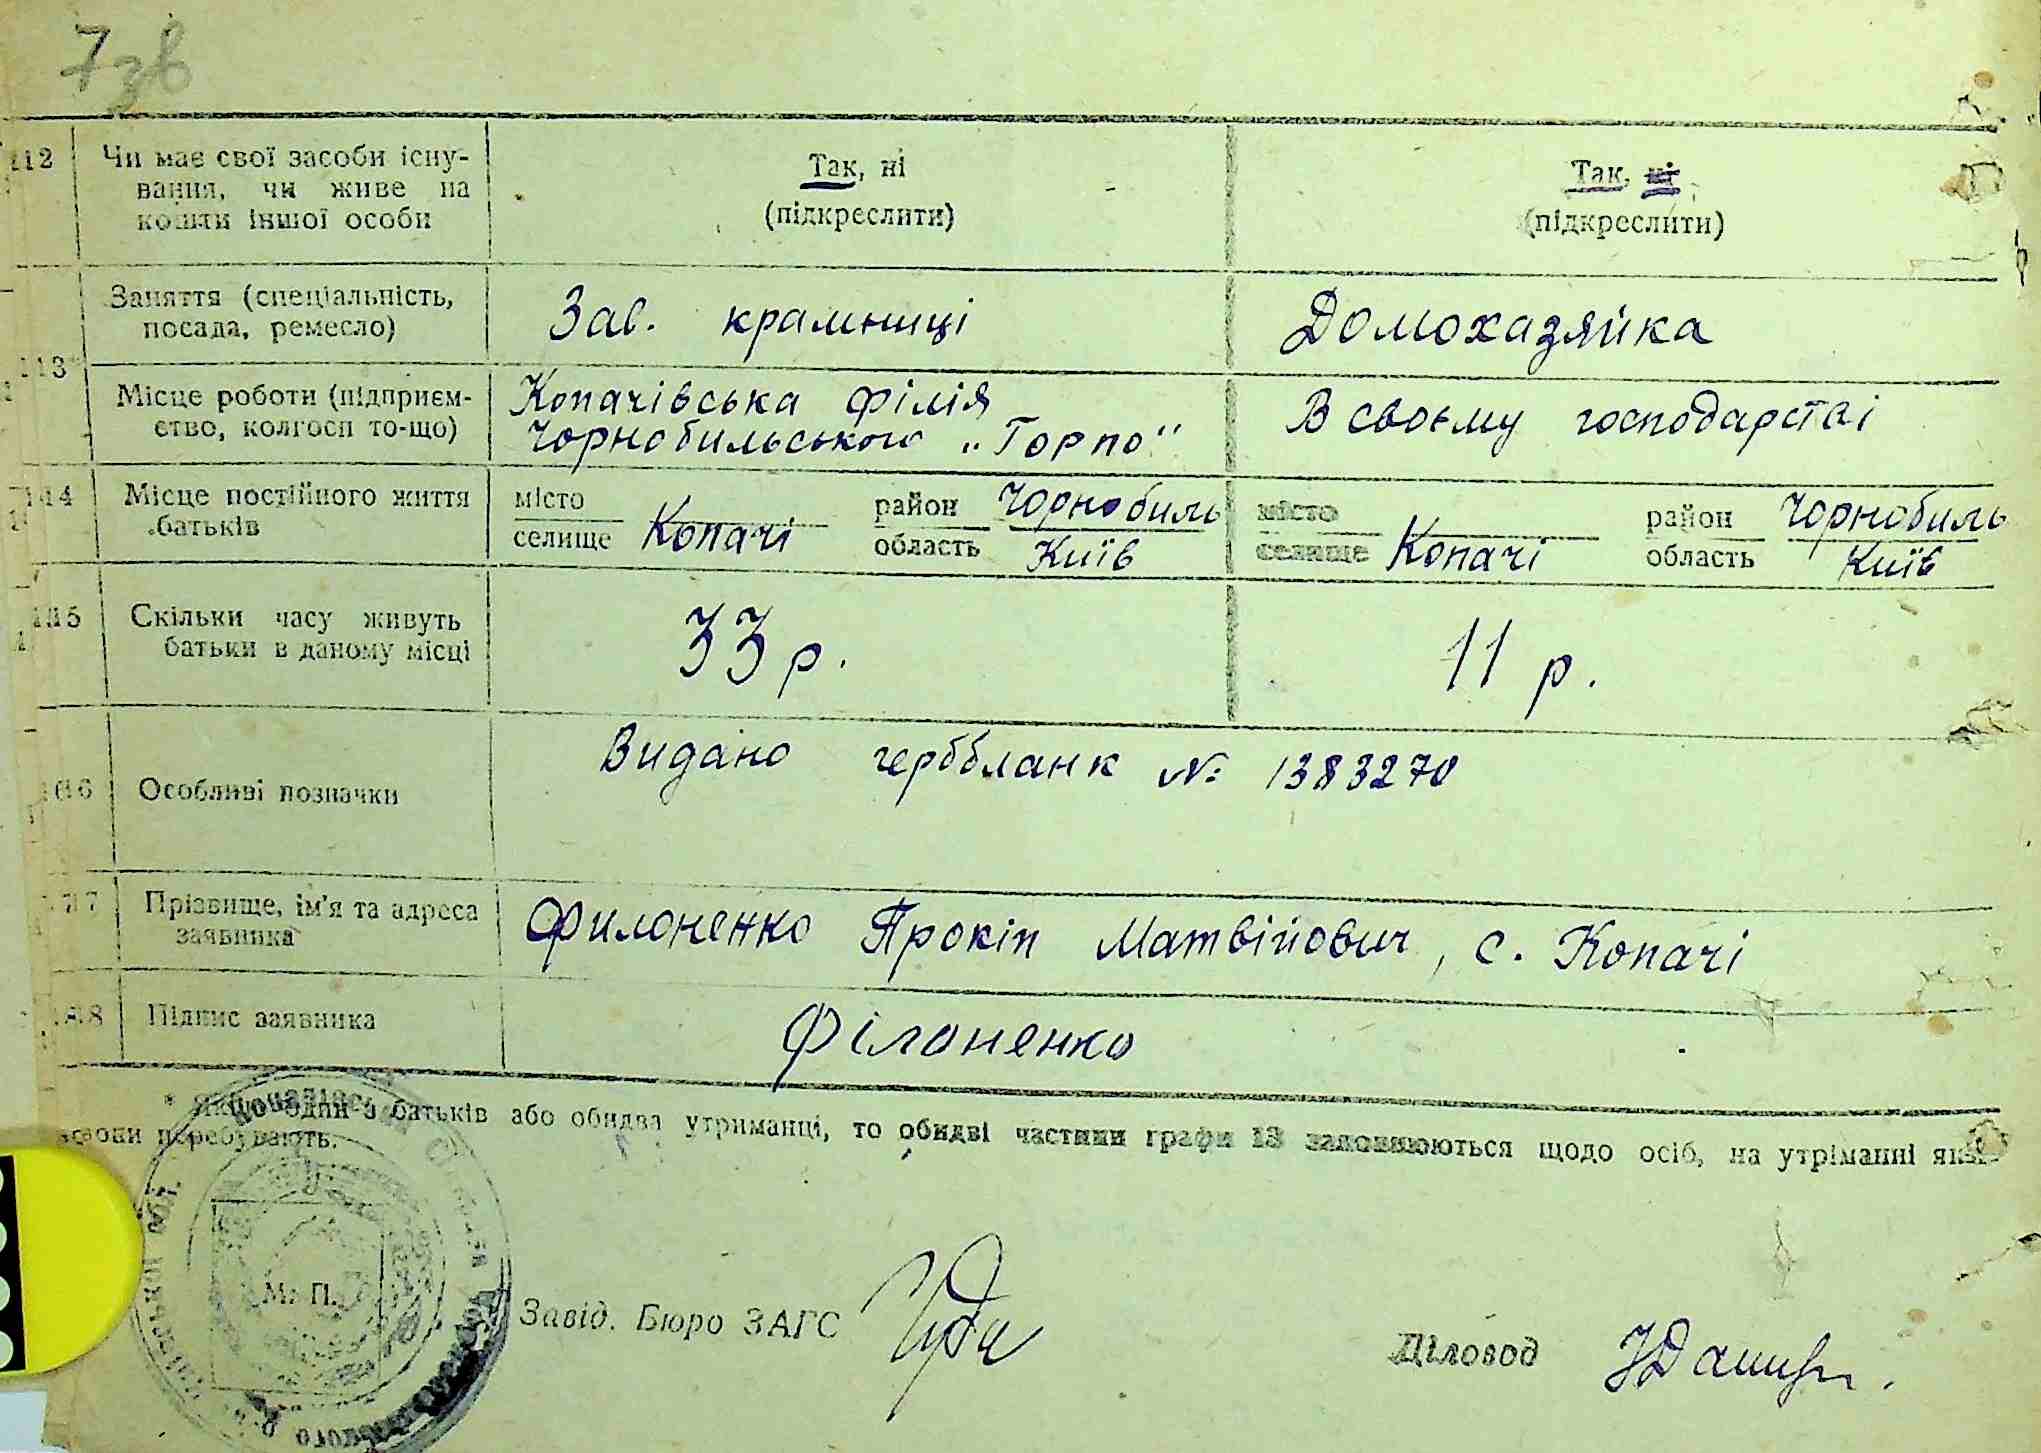 7зв
12 Чи має свої засоби існу-
вання, чи живе на
кошти іншої особи
Так, ні
(підкреслити)
Так, ні
(підкреслити)
13 Заняття (спеціальність,
посада, ремесло)
Зав. крамниці
Домохазяйка
Місце роботи (підприєм-
ство, колгосп то-що)
Копачівська філія
Чорнобильського „Горпо"
В своєму господарстві
14 Місце постійного життя
батьків
місто
селище Копачі
район Чорнобиль
область Київ
місто
селище Копачі
район Чорнобиль
область Київ
15 Скільки часу живуть
батьки в даному місці
33 р.
11 р.
16 Особливі позначки
Видано герббланк № 1383270
17 Прізвище, ім'я та адреса
заявника
Филоненко Прокіп Матвійович, с. Копачі
18 Підпис заявника
Філоненко
* Якщо один з батьків або обидва утриманці, то обидві частини графи 13 заповнюються щодо осіб, на утріманні яких
вони перебувають.
М. П.
Завід. Бюро ЗАГС
Діловод